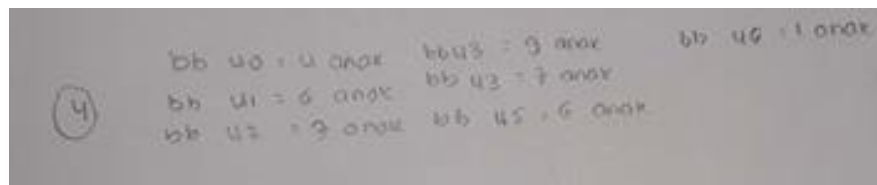 bb 40 = 4 anak bb 43 = 9 anak bb 46 = 1 anak
④ bb 41 = 6 anak bb 43 = 7 anak
bb 42 = 7 anak bb 45 = 6 anak